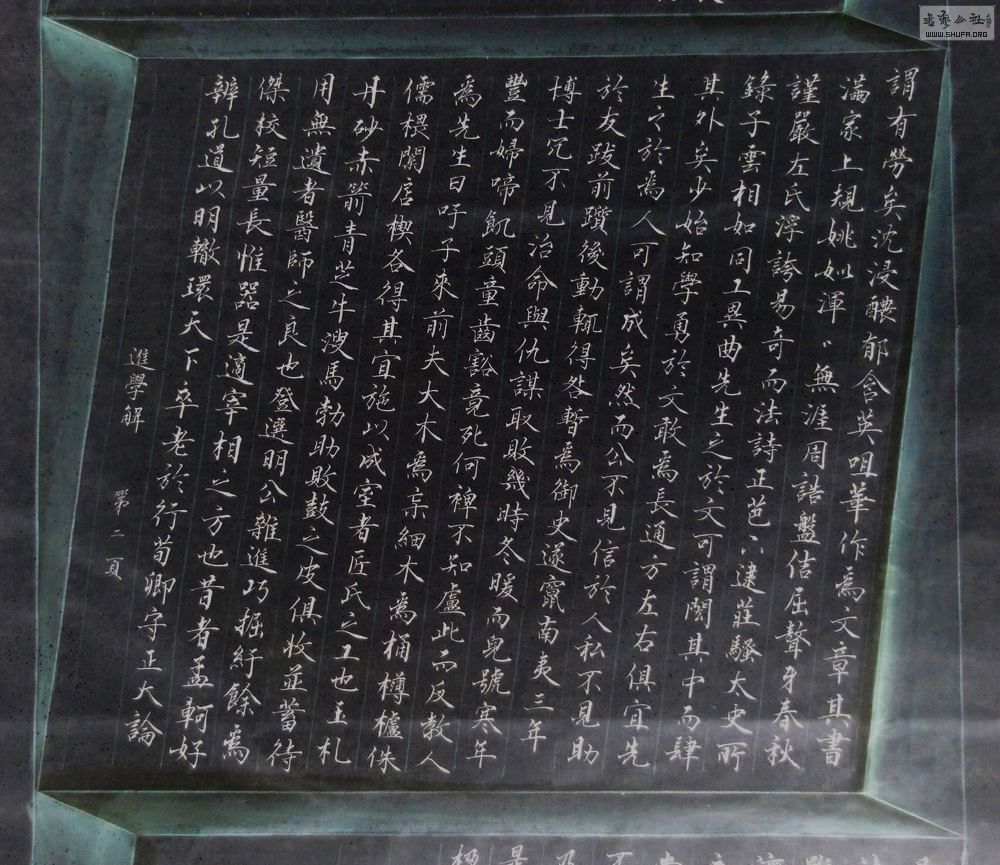 謂有勞矣沈浸醲郁含英咀華作為文章其書
滿家上規姚姒渾〻無涯周誥盤佶屈聱牙春秋
謹嚴左氏浮誇易奇而法詩正葩下逮莊騷太史所
錄子雲相如同工異曲先生之於文可謂閎其中而肆
其外矣少始知學勇於文敢為長通方左右俱宜先
生之於為人可謂成矣然而公不見信於人私不見助
於友跋前躓後動輒得咎暫為御史遂竄南夷三年
博士冗不見治命與仇謀取敗幾時冬暖而兒號寒年
豐而婦啼飢頭童齒豁竟死何裨不知慮此而反教人
為先生曰吁子來前夫大木為杗細木為桷欂櫨侏
儒椳闑扂楔各得其宜施以成室者匠氏之工也玉札
丹砂赤箭青芝牛溲馬勃助敗鼓之皮俱收並蓄待
用無遺者醫師之良也登選明公雜進巧掘紆餘為
傑校短量長惟器是適宰相之方也昔者孟軻好
辨孔道以明轍環天下卒老於行荀卿守正大論
進學解
第二頁
書藝公社
WWW.SHUFA.ORG